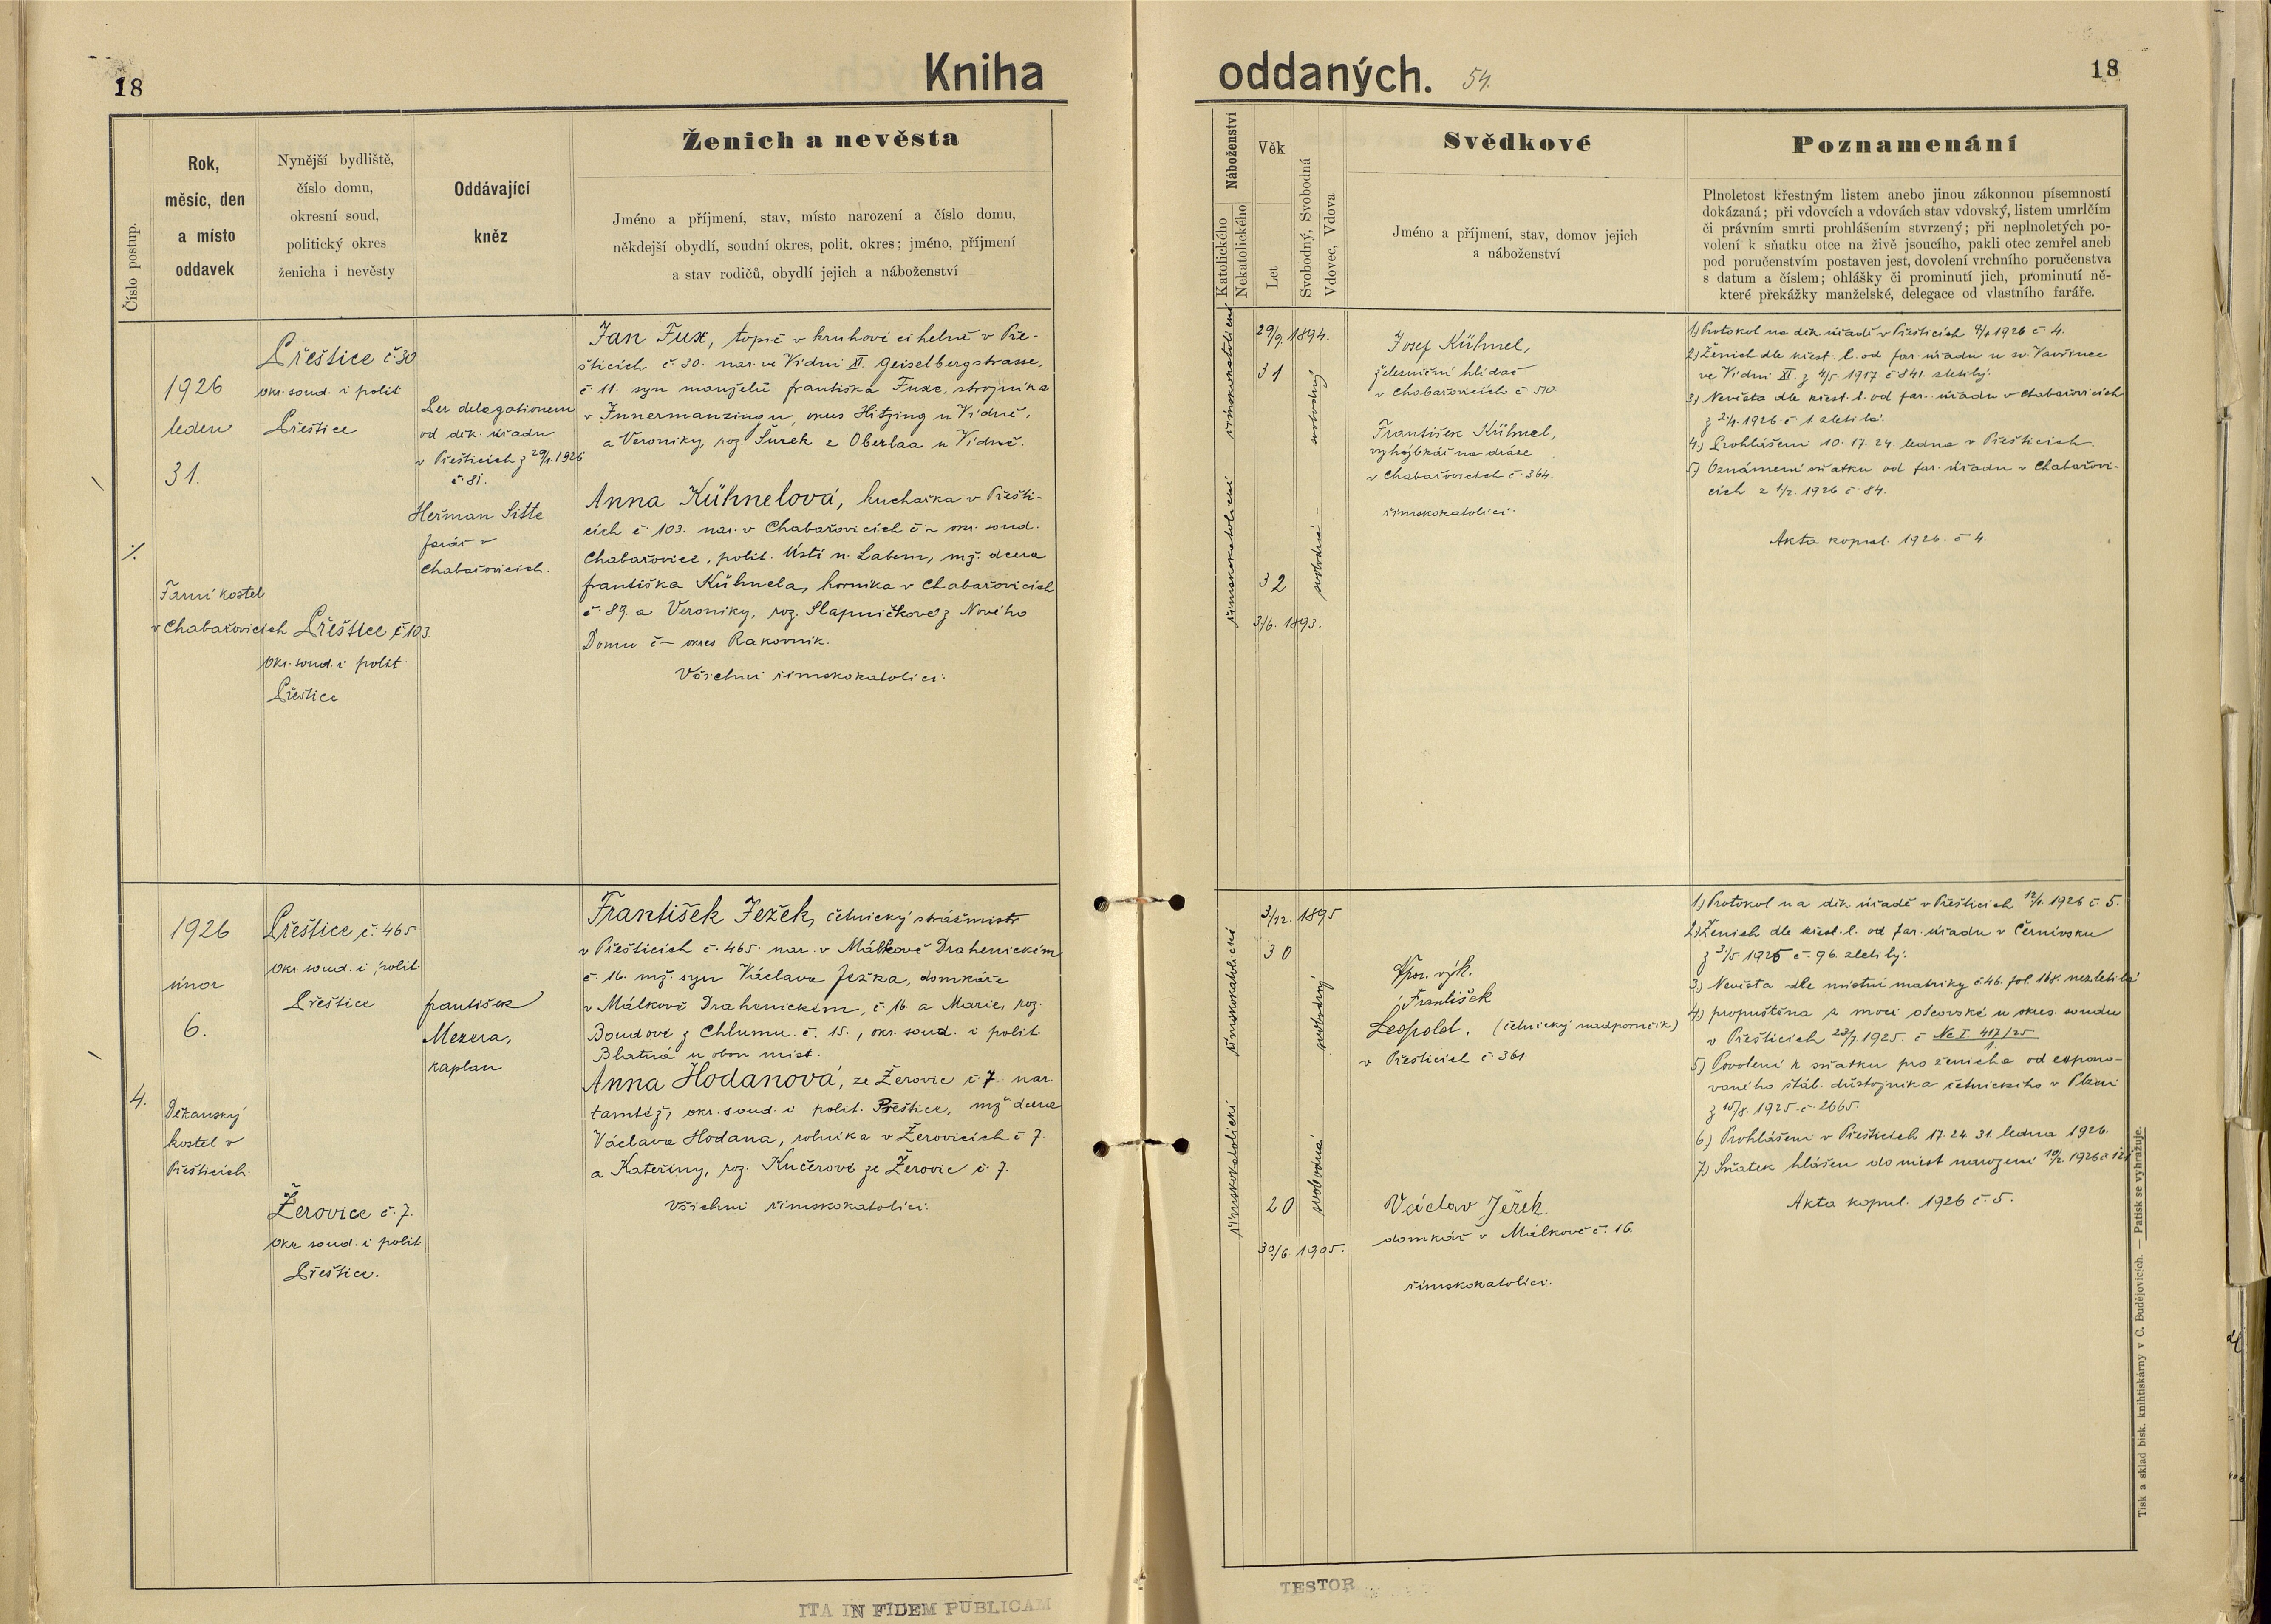 18
Kniha
oddaných.
54.
18
Číslo postup.
Rok,
měsíc, den
a místo
oddavek
Nynější bydliště,
číslo domu,
okresní soud,
politický okres
ženicha i nevěsty
Oddávající
kněz
Ženich a nevěsta
Jméno a příjmení, stav, místo narození a číslo domu,
někdejší obydlí, soudní okres, polit. okres; jméno, příjmení
a stav rodičů, obydlí jejich a náboženství
Náboženství
Katolického
Nekatolického
Věk
Let
Svobodný, Svobodná
Vdovec, Vdova
Svědkové
Jméno a příjmení, stav, domov jejich
a náboženství
Poznamenání
Plnoletost křestným listem anebo jinou zákonnou písemností
dokázaná; při vdovcích a vdovách stav vdovský, listem umrlčím
či právním smrti prohlášením stvrzený; při neplnoletých po-
volení k sňatku otce na živě jsoucího, pakli otec zemřel aneb
pod poručenstvím postaven jest, dovolení vrchního poručenstva
s datum a číslem; ohlášky či prominutí jich, prominutí ně-
které překážky manželské, delegace od vlastního faráře.
1926
leden
31.
Farní kostel
v Chabařovicích
Přeštice č. 30
okr. soud. i polit
Přeštice
Přeštice č 103.
okr. soud. i polit.
Přeštice
Per delegationem
od děk. úřadu
v Přešticích z 29/1. 1926
č. 81.
Heřman Sitte
farář v
Chabařovicích.
Jan Fux, topič v kruhové cihelně v Pře-
šticích č 30. nar. ve Vídni XI. Geiselbergstrasse,
č 11. syn manželů Františka Fuxe, strojníka
v Innermanzingu, okres Hitzing u Vídně,
a Veroniky, roz. Šurek z Oberlaa u Vídně.
Anna Kühnelová, kuchařka v Přešti-
cích č. 103. nar. v Chabařovicích č ~ okr. soud.
Chabařovice, polit. Ústí n. Labem, mž. dcera
Františka Kühnela, horníka v Chabařovicích
č. 89. a Veroniky, roz. Slapničkové z Nového
Domu č – okres Rakovník.
Všichni římskokatolíci.
římskokatolické
římskokatolické
29/9. 1894.
31
32
3/6. 1893.
svobodný
svobodná –
Josef Kühnel,
železniční hlídač
v Chabařovicích č 510.
František Kühnel,
vyhýbkář na dráze
v Chabařovicích č. 364.
římskokatolíci.
1) Protokol na děk úřadě v Přešticích 9/1 1926 č 4.
2) Ženich dle křest. l. od far. úřadu u sv. Vavřince
ve Vídni XI. z 4/5. 1917. č 841. zletilý.
3) Nevěsta dle křest. l. od far. úřadu v Chabařovicích
z 2/1. 1926 č 1. zletilá.
4) Prohlášeni 10. 17. 24. ledna v Přešticích.
5) Oznámení sňatku od far. úřadu v Chabařovi-
cích z 1/2. 1926 č. 84.
Akta kopul. 1926. č 4.
4.
1926
únor
6.
Děkanský
kostel v
Přešticích.
Přeštice č. 465
okr. soud. i polit.
Přeštice
Žerovice č. 7.
okr soud. i polit
Přeštice.
František
Mezera,
kaplan
František Ježek, četnický strážmistr
v Přešticích č. 465. nar. v Málkově Drahenickém
č. 16. mž. syn Václava Ježka, domkáře
v Málkově Drahenickém, č. 16 a Marie, roz.
Boudové z Chlumu č. 15., okr. soud. i polit
Blatná u obou míst.
Anna Hodanová, ze Žerovic č. 7 nar.
tamtéž, okr. soud. i polit. Přeštice, mž dcera
Václava Hodana, rolníka v Žerovicích č 7.
a Kateřiny, roz. Kučerové ze Žerovic č. 7.
Všichni římskokatolíci.
římskokatolické
římskokatolické
3/12. 1895
30
20
30/6. 1905.
svobodný
svobodná
František
Leopold. (četnický nadporučík)
v Přešticích č. 361.
Václav Ježek
domkář v Málkově č. 16.
římskokatolíci.
1) Protokol na děk. úřadě v Přešticích 12/1. 1926 č 5.
2) Ženich dle křest. l. od far. úřadu v Černívsku
z 3/5 1925 č. 96. zletilý.
3) Nevěsta dle místní matriky č 46. fol 168. nezletilá
4) propuštěna z moci otcovské u okres. soudu
v Přešticích 23/7. 1925. č Nc I. 417/25
5) Povolení k sňatku pro ženicha od expono-
vaného štáb. důstojníka četnického v Plzni
z 15/8. 1925. č. 2665.
6) Prohlášeni v Přešticích 17. 24. 31. ledna 1926.
7) Sňatek hlášen do míst narození 10/2. 1926 č
Akta kopul. 1926 č 5.
Tisk a sklad bisk. knihtiskárny v Č. Budějovicích. — Patisk se vyhražuje.
ITA IN FIDEM PUBLICAM
TESTOR